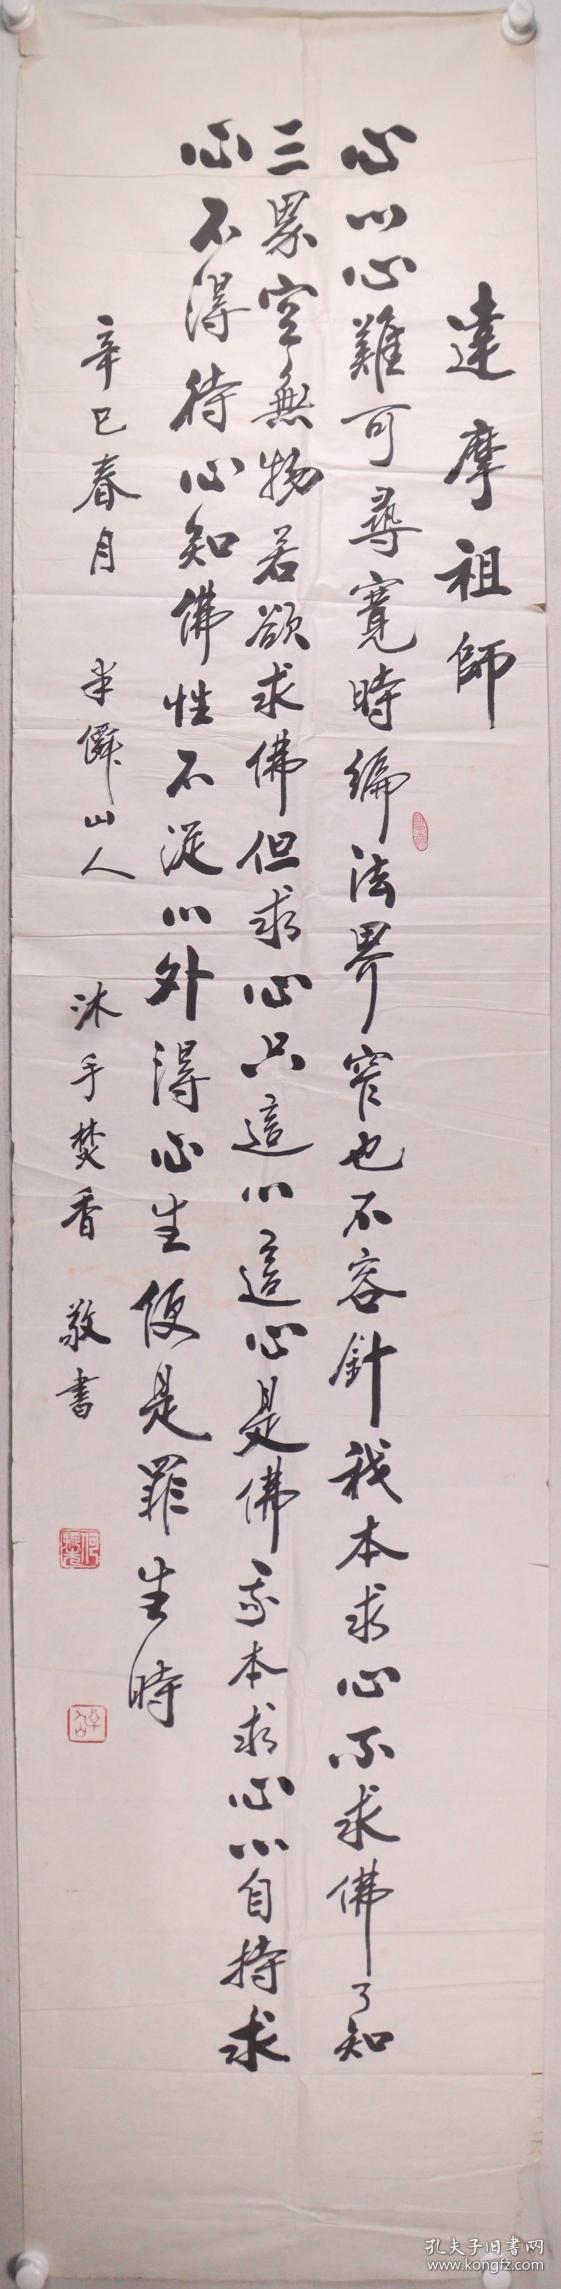 達摩祖師
心心心難可尋寬時編法界窄也不容針我本求心不求佛了知
三界空無物若欲求佛但求心只這心這心是佛我本求心心自持求
心不得待心知佛性不從心外得心生便是罪生時
辛巳春月 半僊山人 沐手焚香 敬書
孔夫子旧書网
www.kongfz.com